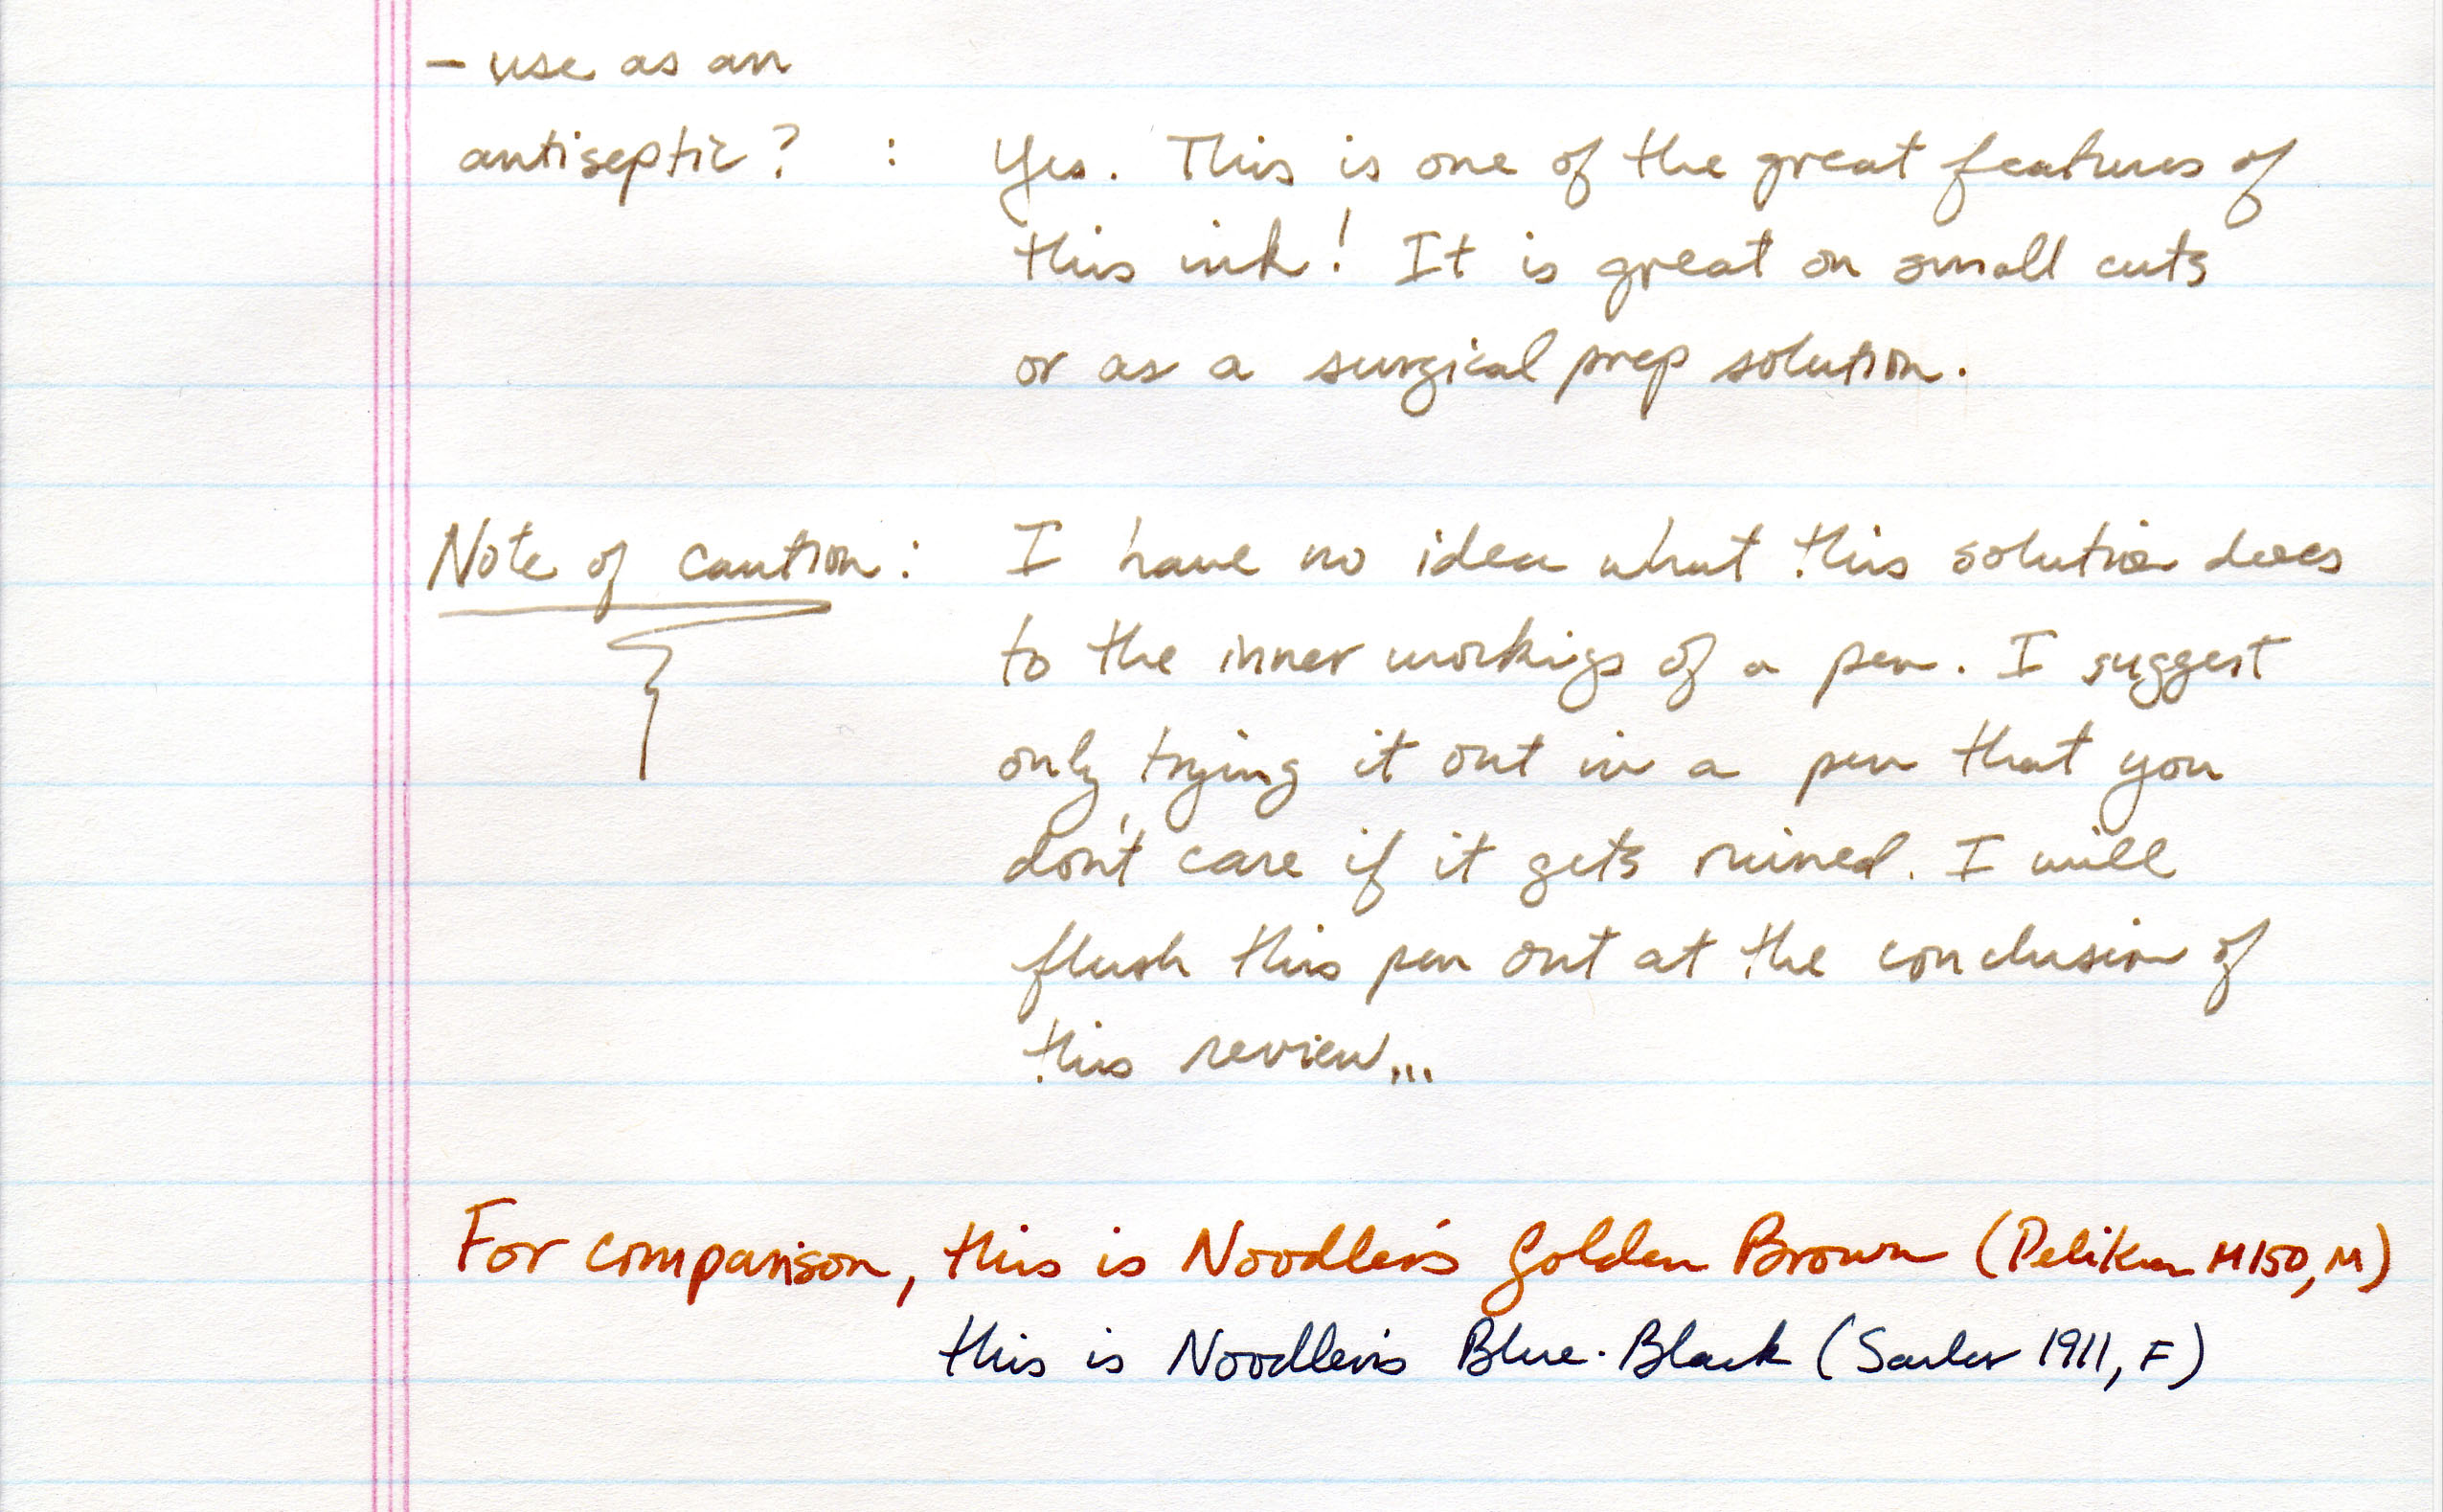 - use as an
antiseptic? : Yes. This is one of the great features of
this ink! It is great on small cuts
or as a surgical prep solution.
Note of caution: I have no idea what this solution does
to the inner workings of a pen. I suggest
only trying it out in a pen that you
don't care if it gets ruined. I will
flush this pen out at the conclusion of
this review...
For comparison, this is Noodler's Golden Brown (Pelikan M150, M)
this is Noodler's Blue-Black (Sailor 1911, F)